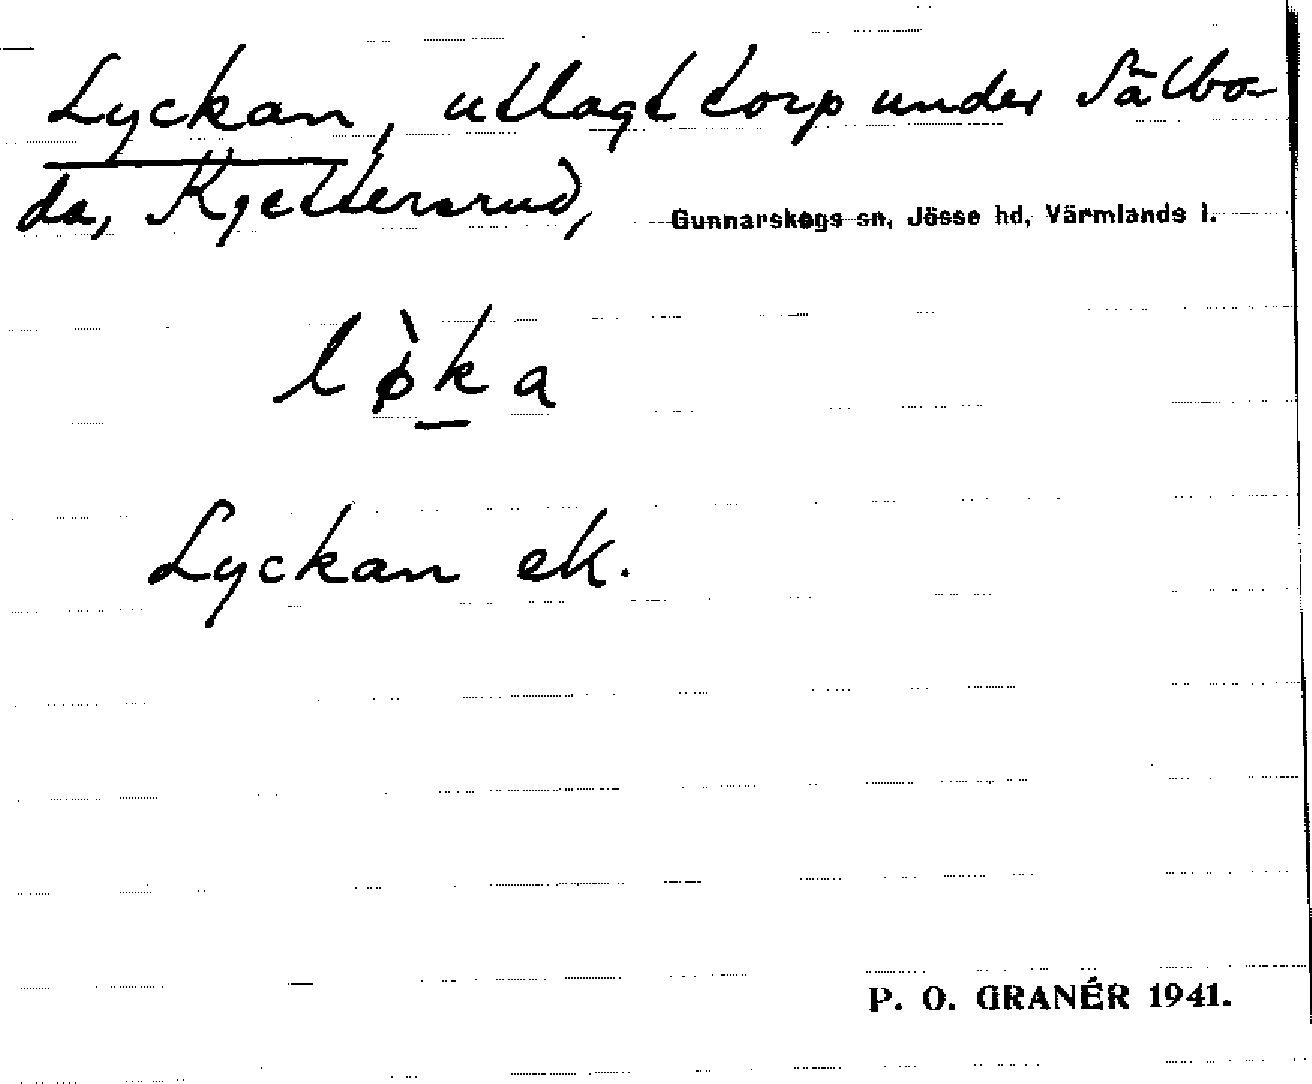 Lyckan, utlagt torp under Sälbo-
da, Kjettersrud, Gunnarskogs sn, Jösse hd, Värmlands l.
lø̀k̲a
Lyckan ek.
P. O. GRANÉR 1941.